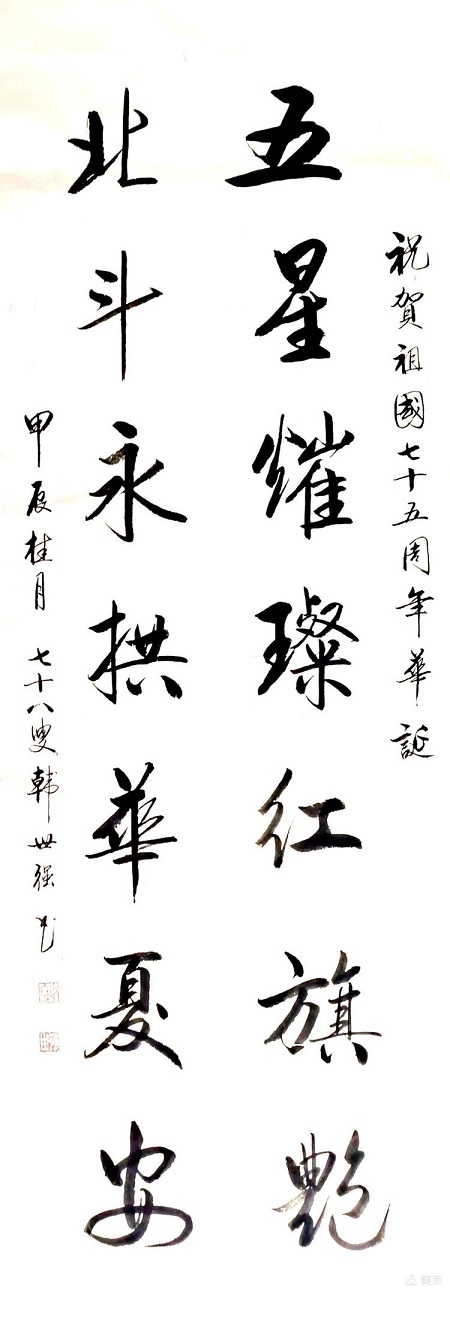 祝賀祖國七十五周年華誕
五星熣璨红旗艶
北斗永拱華夏安
甲辰桂月 七十八叟韩世强书
美篇